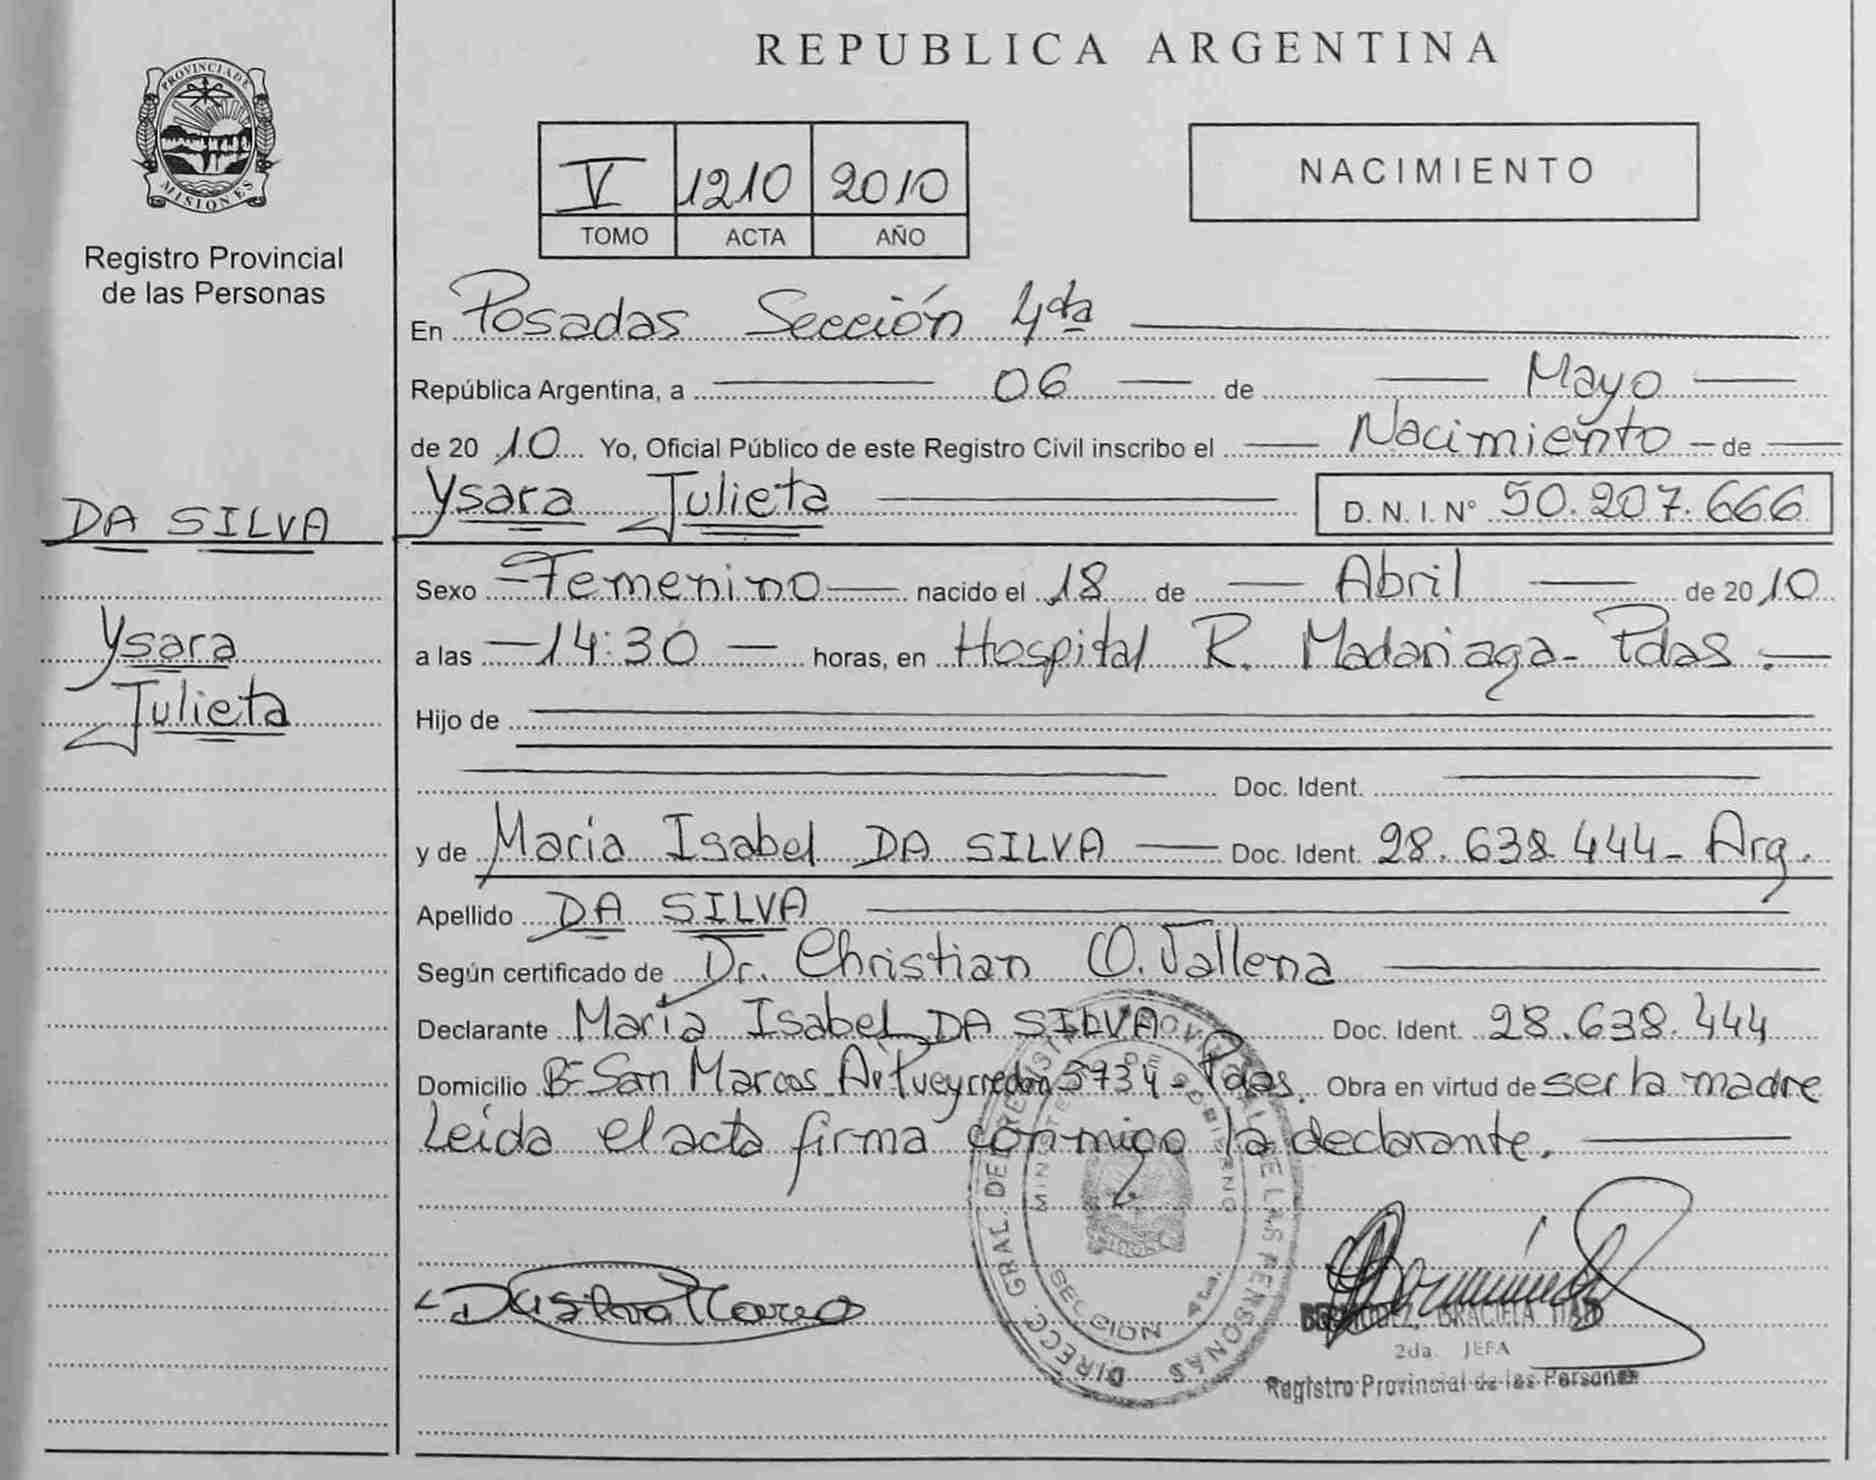 REPUBLICA ARGENTINA
PROVINCIA DE
MISIONES
Registro Provincial
de las Personas
V 1210 2010
TOMO ACTA AÑO
NACIMIENTO
En Posadas Sección 4da
República Argentina, a 06 de Mayo
de 2010 Yo, Oficial Público de este Registro Civil inscribo el Nacimiento de
Ysara Julieta D.N.I.Nº 50.207.666
DA SILVA
Ysara
Julieta
Sexo Femenino nacido el 18 de Abril de 2010
a las 14:30 horas, en Hospital R. Madariaga - Pdas.
Hijo de
Doc. Ident.
y de Maria Isabel DA SILVA Doc. Ident. 28.638.444 - Arg.
Apellido DA SILVA
Según certificado de Dr. Christian O. Vallena
Declarante María Isabel DA SILVA Doc. Ident. 28.638.444
Domicilio Bº San Marcos Av Pueyrredon 5734 - Pdas. Obra en virtud de ser la madre
Leída el acta firma conmigo la declarante.
DIRECC. GRAL. DEL REGISTRO PROVINCIAL DE LAS PERSONAS
MINISTERIO DE GOBIERNO
SECCION 4ta.
Da silva Maria
GRACIELA
2da. JEFA
Registro Provincial de las Personas